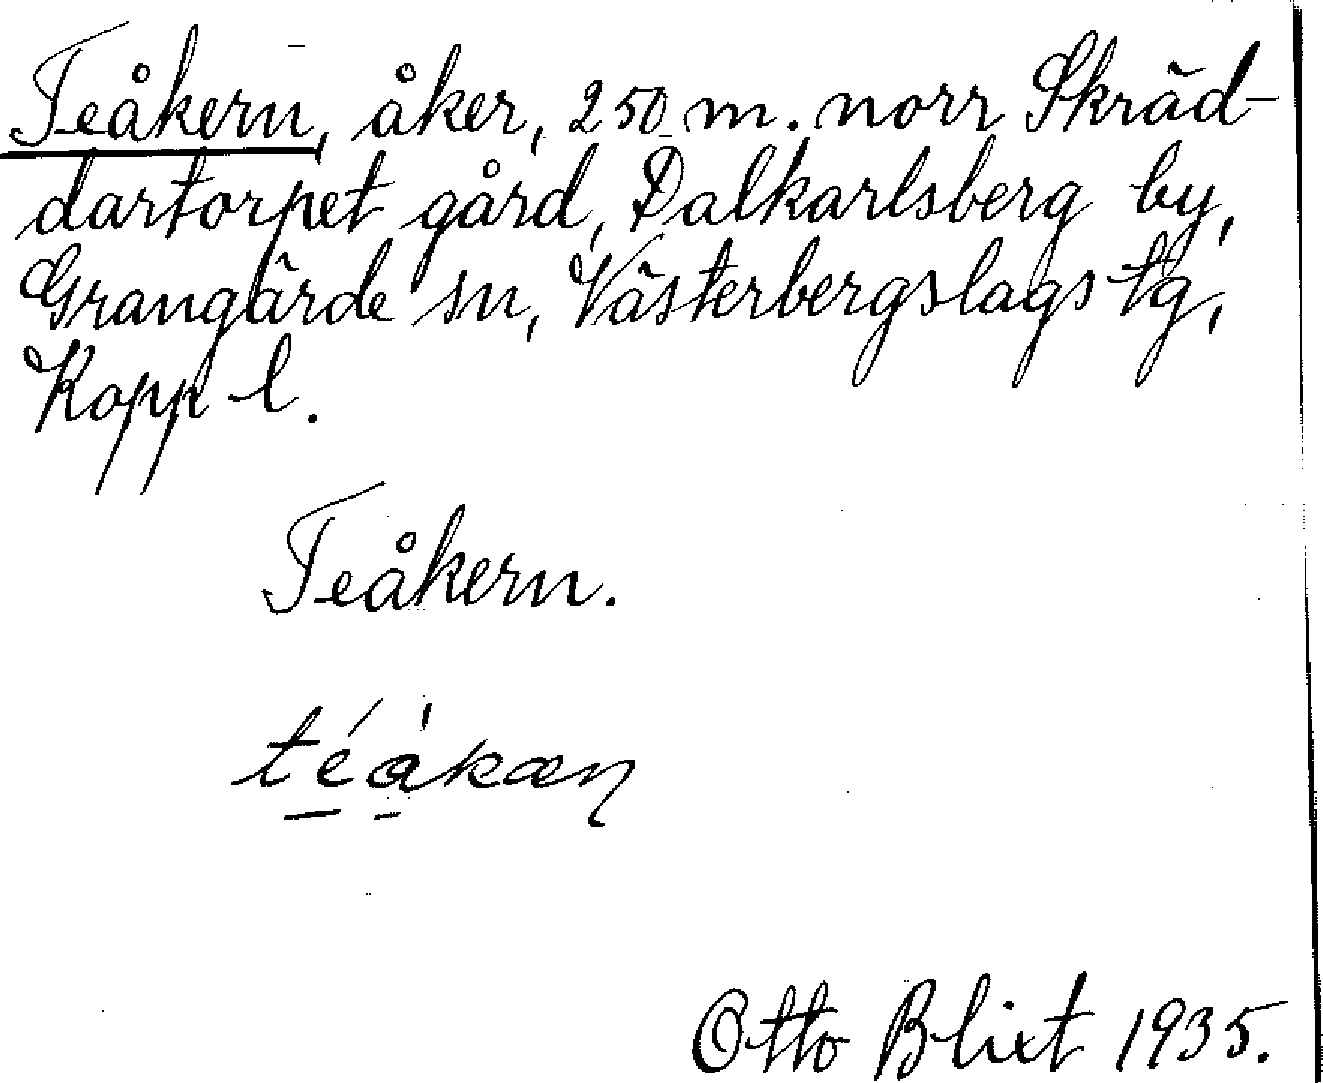 Teåkern, åker, 250 m. norr Skräd-
dartorpet gård, Dalkarlsberg by,
Grangärde sn, Västerbergslags tg,
Kopp l.
Teåkern.
téákæɳ
Otto Blixt 1935.